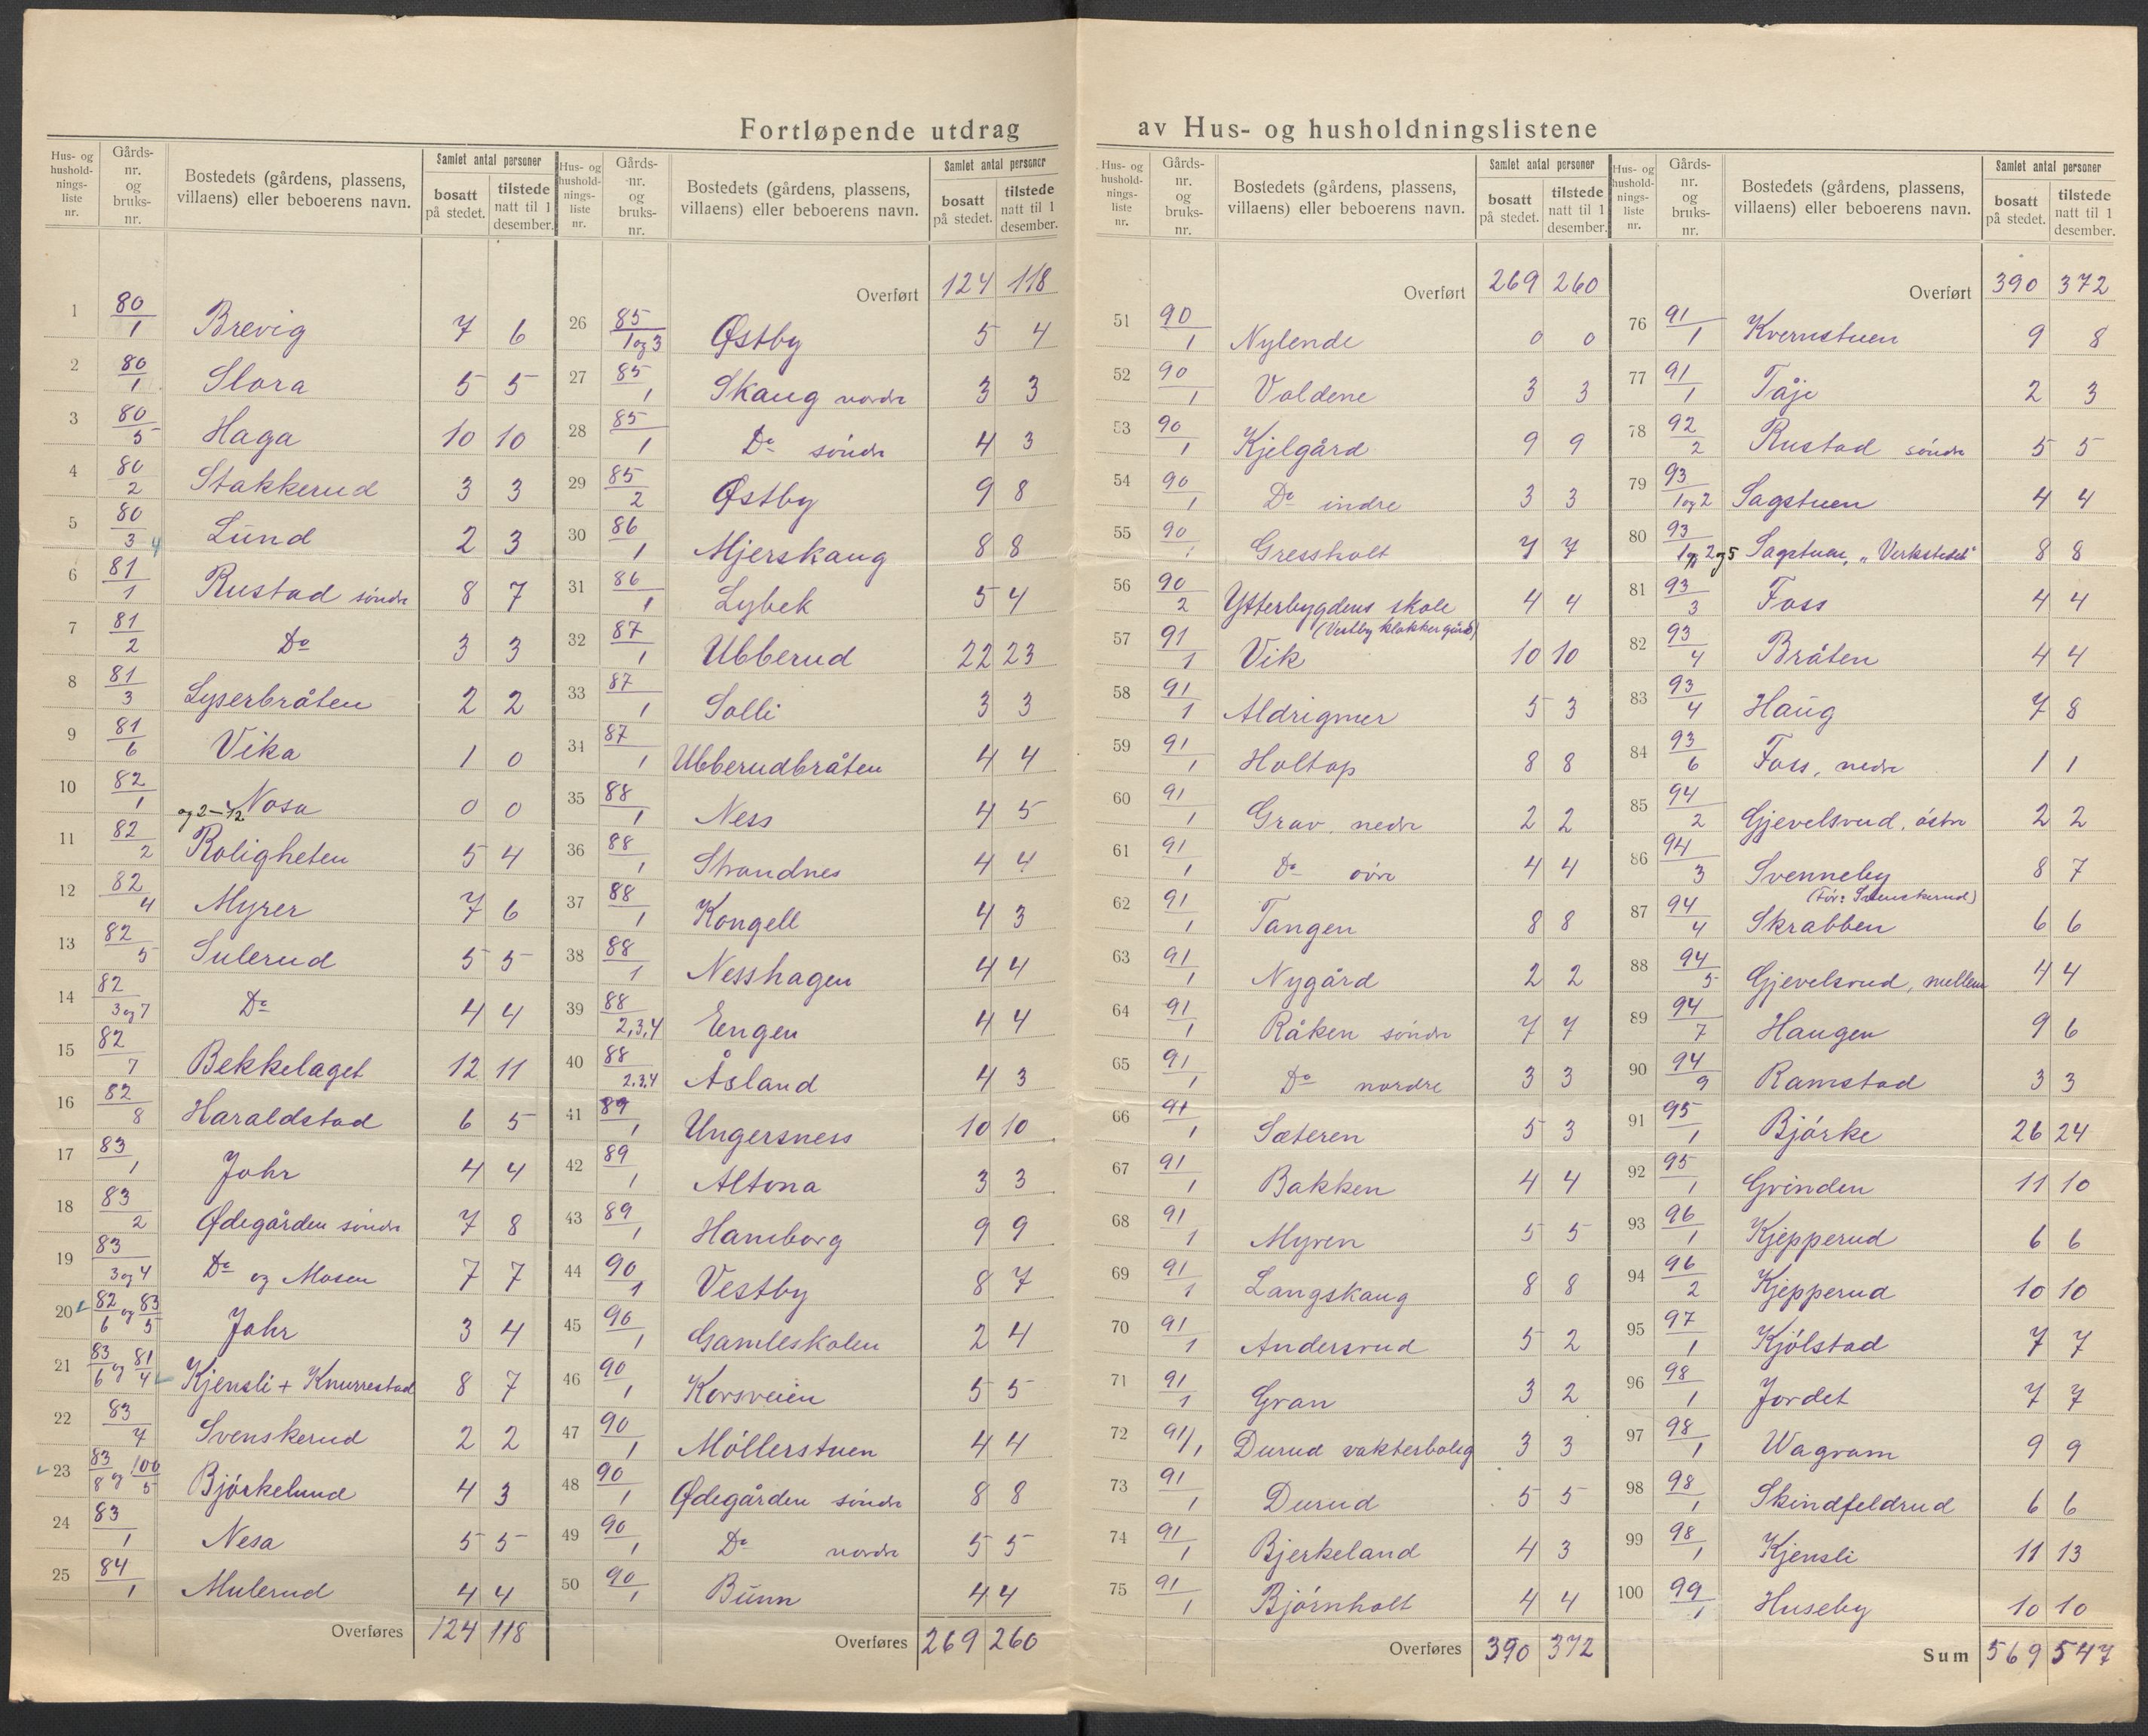 Fortløpende utdrag av Hus- og husholdningslistene
Hus- og hushold-nings-liste nr. | Gårds-nr. og bruks-nr. | Bostedets (gårdens, plassens, villaens) eller beboerens navn. | Samlet antal personer bosatt på stedet. | tilstede natt til 1 desember.
1 | 80/1 | Brevig | 7 | 6
2 | 80/1 | Slora | 5 | 5
3 | 80/5 | Haga | 10 | 10
4 | 80/2 | Stakkerud | 3 | 3
5 | 80/3 4 | Lund | 2 | 3
6 | 81/1 | Rustad søndre | 8 | 7
7 | 81/2 | Do | 3 | 3
8 | 81/3 | Lyserbråten | 2 | 2
9 | 81/6 | Vika | 1 | 0
10 | 82/1 og 2-12 | Nosa | 0 | 0
11 | 82/2 | Roligheten | 5 | 4
12 | 82/4 | Myrer | 7 | 6
13 | 82/5 | Sulerud | 5 | 5
14 | 82/3 og 7 | Do | 4 | 4
15 | 82/7 | Bekkelaget | 12 | 11
16 | 82/8 | Haraldstad | 6 | 5
17 | 83/1 | Johr | 4 | 4
18 | 83/2 | Ødegården søndre | 7 | 8
19 | 83/3 og 4 | Do og Mosen | 7 | 7
20 | 82/6 og 83/5 | Johr | 3 | 4
21 | 83/6 og 81/4 | Kjensli + Knurrestad | 8 | 7
22 | 83/7 | Svenskerud | 2 | 2
23 | 83/8 og 100/5 | Bjørkelund | 4 | 3
24 | 83/1 | Nesa | 5 | 5
25 | 84/1 | Mulerud | 4 | 4
Overføres 124 | 118
Hus- og hushold-nings-liste nr. | Gårds-nr. og bruks-nr. | Bostedets (gårdens, plassens, villaens) eller beboerens navn. | Samlet antal personer bosatt på stedet. | tilstede natt til 1 desember.
Overført 124 | 118
26 | 85/1 og 3 | Østby | 5 | 4
27 | 85/1 | Skaug nordre | 3 | 3
28 | 85/1 | Do søndre | 4 | 3
29 | 85/2 | Østby | 9 | 8
30 | 86/1 | Mjerskaug | 8 | 8
31 | 86/1 | Lybek | 5 | 4
32 | 87/1 | Ubberud | 22 | 23
33 | 87/1 | Solli | 3 | 3
34 | 87/1 | Ubberudbråten | 4 | 4
35 | 88/1 | Ness | 4 | 5
36 | 88/1 | Strandnes | 4 | 4
37 | 88/1 | Kongell | 4 | 3
38 | 88/1 | Nesshagen | 4 | 4
39 | 88/2,3,4 | Engen | 4 | 4
40 | 88/2,3,4 | Åsland | 4 | 3
41 | 89/1 | Ungersness | 10 | 10
42 | 89/1 | Altona | 3 | 3
43 | 89/1 | Hamborg | 9 | 9
44 | 90/1 | Vestby | 8 | 7
45 | 90/1 | Gamleskolen | 2 | 4
46 | 90/1 | Korsveien | 5 | 5
47 | 90/1 | Møllerstuen | 4 | 4
48 | 90/1 | Ødegården søndre | 8 | 8
49 | 90/1 | Do nordre | 5 | 5
50 | 90/1 | Bunn | 4 | 4
Overføres 269 | 260
Hus- og hushold-nings-liste nr. | Gårds-nr. og bruks-nr. | Bostedets (gårdens, plassens, villaens) eller beboerens navn. | Samlet antal personer bosatt på stedet. | tilstede natt til 1 desember.
Overført 269 | 260
51 | 90/1 | Nylende | 0 | 0
52 | 90/1 | Voldene | 3 | 3
53 | 90/1 | Kjelgård | 9 | 9
54 | 90/1 | Do indre | 3 | 3
55 | 90/1 | Gressholt | 7 | 7
56 | 90/2 | Ytterbygdens skole (Vestby klokkergård) | 4 | 4
57 | 91/1 | Vik | 10 | 10
58 | 91/1 | Aldrigmer | 5 | 3
59 | 91/1 | Holtop | 8 | 8
60 | 91/1 | Grav, nedre | 2 | 2
61 | 91/1 | Do øvre | 4 | 4
62 | 91/1 | Tangen | 8 | 8
63 | 91/1 | Nygård | 2 | 2
64 | 91/1 | Råken søndre | 7 | 7
65 | 91/1 | Do nordre | 3 | 3
66 | 91/1 | Sæteren | 5 | 3
67 | 91/1 | Bakken | 4 | 4
68 | 91/1 | Myren | 5 | 5
69 | 91/1 | Langskaug | 8 | 8
70 | 91/1 | Andersrud | 5 | 2
71 | 91/1 | Gran | 3 | 2
72 | 91/1 | Durud vakterbolig | 3 | 3
73 | 91/1 | Durud | 5 | 5
74 | 91/1 | Bjerkeland | 4 | 3
75 | 91/1 | Bjørnholt | 4 | 4
Overføres 390 | 372
Hus- og hushold-nings-liste nr. | Gårds-nr. og bruks-nr. | Bostedets (gårdens, plassens, villaens) eller beboerens navn. | Samlet antal personer bosatt på stedet. | tilstede natt til 1 desember.
Overført 390 | 372
76 | 91/1 | Kvernstuen | 9 | 8
77 | 91/1 | Tåje | 2 | 3
78 | 92/2 | Rustad søndre | 5 | 5
79 | 93/1 og 2 | Sagstuen | 4 | 4
80 | 93/1 og 2 og 5 | Sagstuen, „Verkstedet" | 8 | 8
81 | 93/3 | Foss | 4 | 4
82 | 93/4 | Bråten | 4 | 4
83 | 93/4 | Haug | 7 | 8
84 | 93/6 | Foss, nedre | 1 | 1
85 | 94/2 | Gjevelsrud, østre | 2 | 2
86 | 94/3 | Svenneby (Før: Svenskerud) | 8 | 7
87 | 94/4 | Skrabben | 6 | 6
88 | 94/5 | Gjevelsrud, mellem | 4 | 4
89 | 94/7 | Haugen | 9 | 6
90 | 94/9 | Ramstad | 3 | 3
91 | 95/1 | Bjørke | 26 | 24
92 | 95/1 | Grinden | 11 | 10
93 | 96/1 | Kjepperud | 6 | 6
94 | 96/2 | Kjepperud | 10 | 10
95 | 97/1 | Kjølstad | 7 | 7
96 | 98/1 | Jordet | 7 | 7
97 | 98/1 | Wagram | 9 | 9
98 | 98/1 | Skindfeldrud | 6 | 6
99 | 98/1 | Kjensli | 11 | 13
100 | 99/1 | Huseby | 10 | 10
Sum 569 | 547